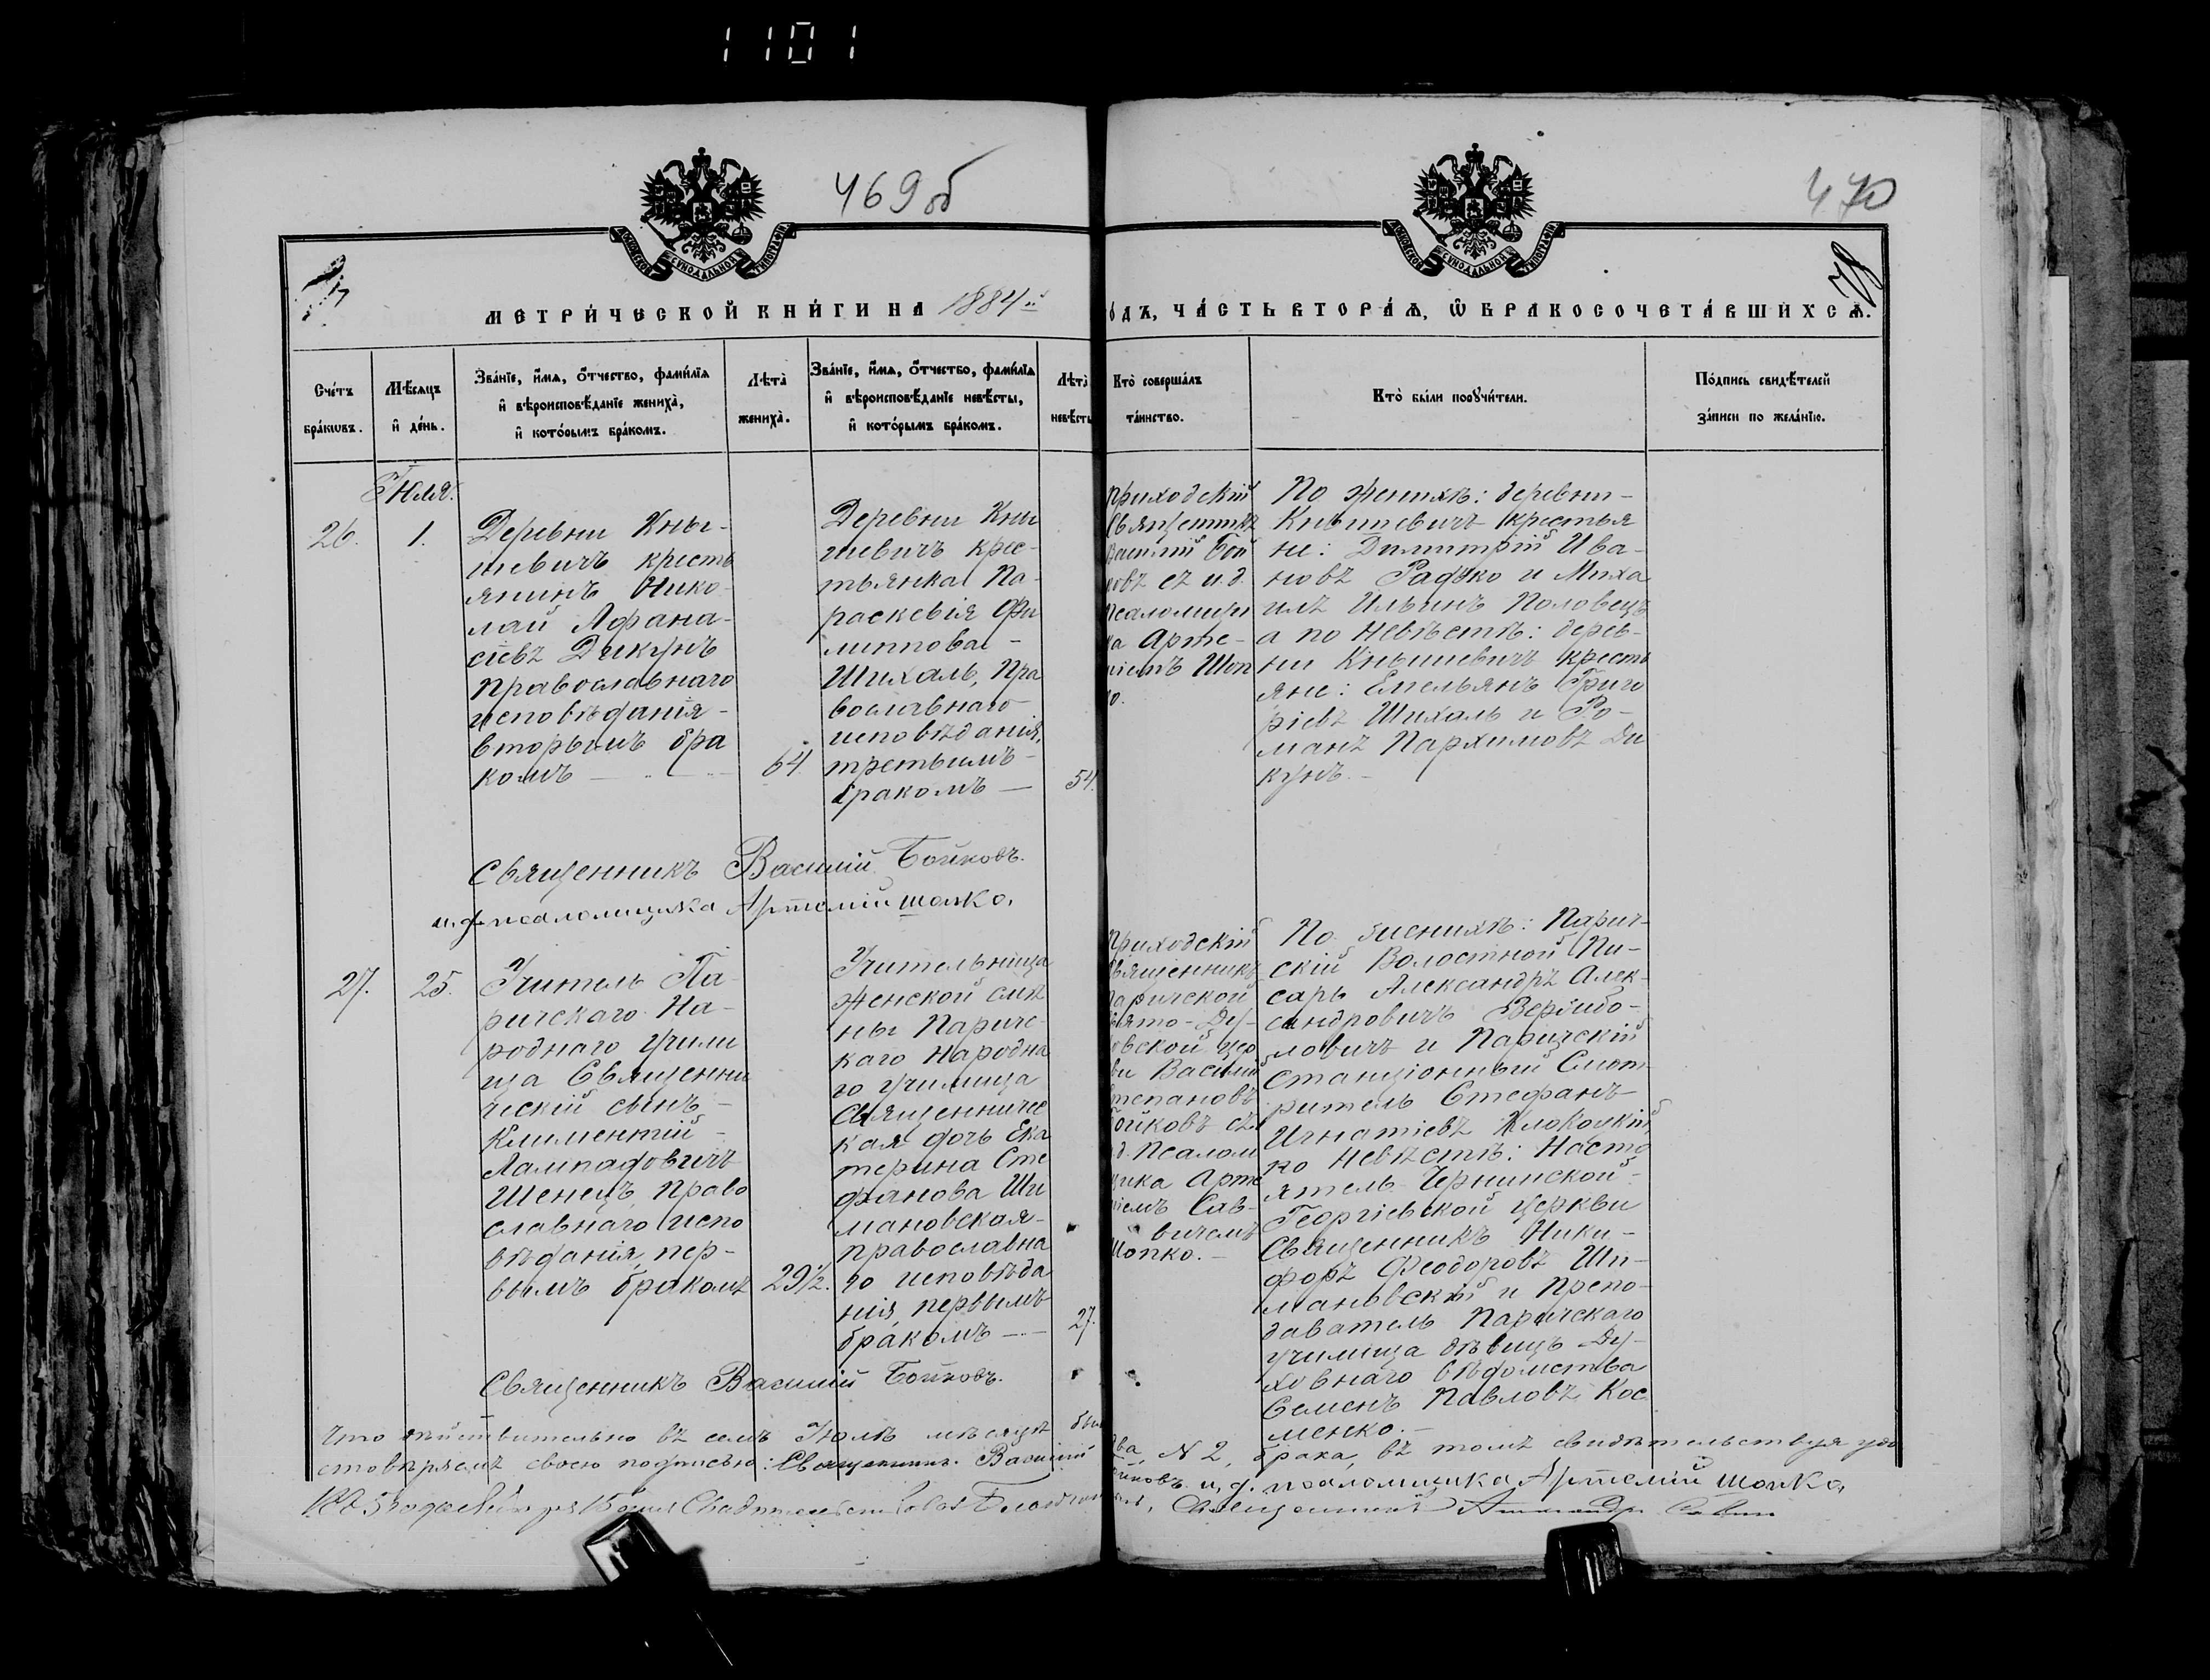 1101
469 об
470
МОСКОВСКОЙ СѴНОДАЛЬНОЙ ТИПОГРАФІИ
МОСКОВСКОЙ СѴНОДАЛЬНОЙ ТИПОГРАФІИ
78
МЕТРИ́ЧЕСКОЙ КНИ́ГИ НА 1884й
О́ДЪ, ЧА́СТЬ ВТОРА́Ѧ, Ѡ҆ БРАКОСОЧЕТА́ВШИХСѦ.
Сче́тъ
бра́кѡвъ.
Мѣ́сѧцъ
и҆ де́нь.
Зва́нїе, и҆́мѧ, ѻ҆́тчество, фами́лїѧ
и҆ вѣроисповѣ́данїе жениха̀,
и҆ кото́рымъ бра́комъ.
Лѣта̀
жениха̀.
Зва́нїе, и҆́мѧ, ѻ҆́тчество, фами́лїѧ
и҆ вѣроисповѣ́данїе невѣ́сты,
и҆ кото́рымъ бра́комъ.
Лѣта̀
невѣ́сты
Кто̀ соверша́лъ
та́инство.
Кто̀ бы́ли порꙋчи́тели.
По́дпись свидѣ́телей
за́писи по жела́нїю.
Іюля.
26.
1.
Деревни Кны-
шевичъ кресть
янинъ Нико-
лай Афана-
сіевъ Дикунъ
православнаго
исповѣданія-
вторымъ бра
комъ —
64
Деревни Кны
шевичъ крес-
тьянка Па-
раскевія Фи
липпова -
Шихаль, пра
вославнаго-
исповѣданія,
третьимъ-
бракомъ —
54.
Приходскій
Священникъ
Василій Бой
ковъ съ и.д.
Псаломщи
ка Арте-
міемъ Шоп
ко.
По женихѣ: деревни-
Кнышевичъ крестья
не: Димитрій Ива-
новъ Радько и Миха
илъ Ильинъ Половецъ
а по невѣстѣ: дерев-
ни Кнышевичъ кресть
яне: Емельянъ Григо
ріевъ Шихаль и Ро-
манъ Пархимовъ Ди
кунъ.-
Священникъ Василій Бойковъ.
и.д. псаломщика Артемій Шопко.
27.
25.
Учитель Па-
ричскаго На-
роднаго Учили
ща Священни
ческій сынъ-
Климентій-
Лампадовичъ
Шенецъ, право
славнаго испо
вѣданія, пер-
вымъ бракомъ
29½.
Учительница
женской смѣ
ны Паричс-
каго народна
го училища
Священничес
кая дочь Ека
терина Сте
фанова Ши
мановская-
православна
го исповѣда
нія, первымъ
бракомъ —
27.
Приходскій
Священникъ
Паричской
Свято-Ду-
ховской цер
кви Василій
Степановъ
Бойковъ съ
и.д. Псалом
щика Арте
міемъ Сав-
вичемъ
Шопко.-
По женихѣ: Парич-
скій Волостной Пи-
сарь Александръ Алек-
сандровичъ
ловичъ и Паричскій
станціонный Смот-
ритель Стефанъ
Игнатіевъ
по невѣстѣ: Насто
ятель Чернинской-
Георгіевской Церкви
Священникъ Ники-
форъ Феодоровъ Ши-
мановскій и Препо-
даватель Паричскаго
училища дѣвицъ Ду-
ховнаго вѣдомства
Семенъ Павловъ Кос
менко.-
Священникъ Василій Бойковъ.
Что дѣйствительно въ семъ Іюлѣ мѣсяцѣ было
два № 2, брака, въ томъ свидѣтельствуя удо
стовѣряемъ своею подписью: Священникъ Василій
Бойковъ и.д. псаломщика Артемій Шопко.